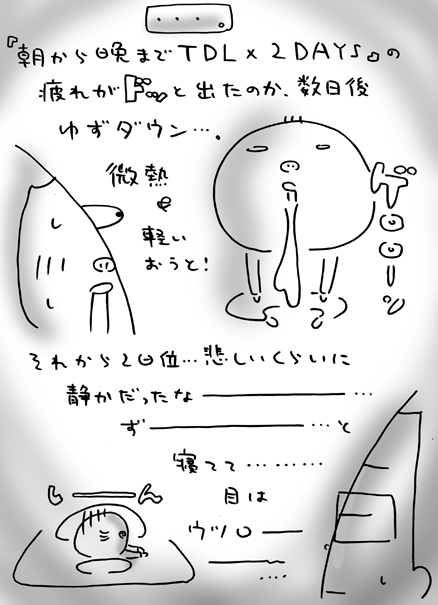 ….
『朝から晩までTDL×2DAYS』の
疲れがドッと出たのか、数日後
ゆずダウン….
微熱
と
軽い
おうと!
ゲロロー
それから2日位…悲しいくらいに
静かだったな――…
ず――…と
寝てて………
目は
ウツロ―
―….
しーん